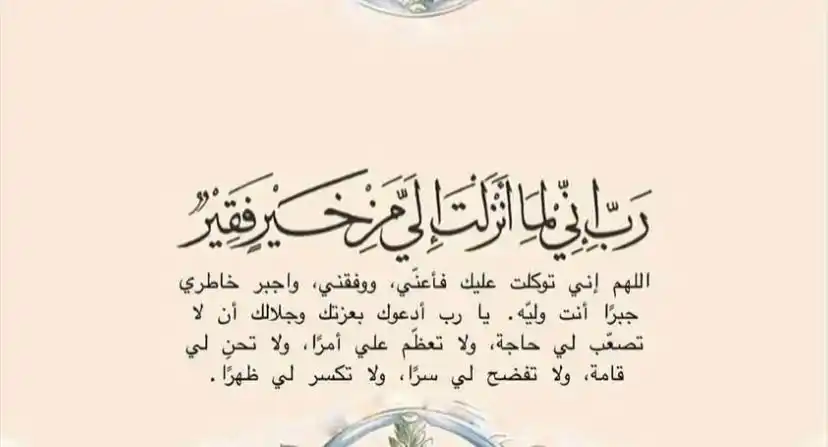 رَبِّ إِنِّي لِمَا أَنْزَلْتَ إِلَيَّ مِنْ خَيْرٍ فَقِيرٌ
اللهم إني توكلت عليك فأعنّي، ووفقني، واجبر خاطري
جبرًا أنت وليّه. يا رب أدعوك بعزتك وجلالك أن لا
تصعّب لي حاجة، ولا تعظّم علي أمرًا، ولا تحنِ لي
قامة، ولا تفضح لي سرًا، ولا تكسر لي ظهرًا.